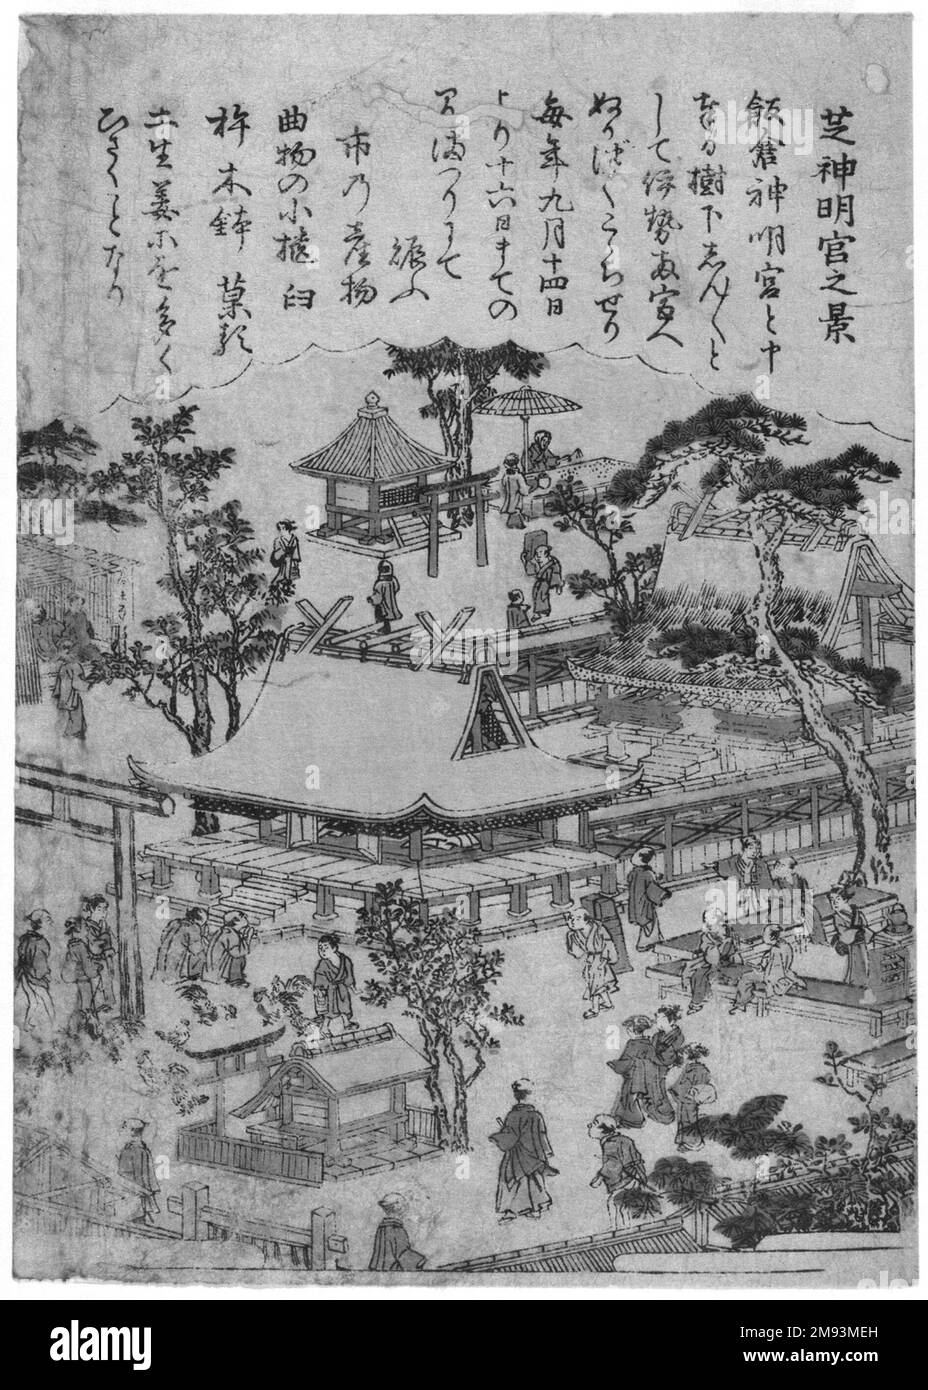 芝神明宮之景
飯倉神明宮と申
奉る樹下しんしんと
して伊勢両宮へ
ぬかづくこゝちせり
毎年九月十四日
より十六日までの
間満つりにて
賑ふ
市の産物
曲物の小櫃 臼
杵 木鉢 菓子
土生姜等を多く
ひさくとなり
alamy
Image ID: 2M93MEH
www.alamy.com